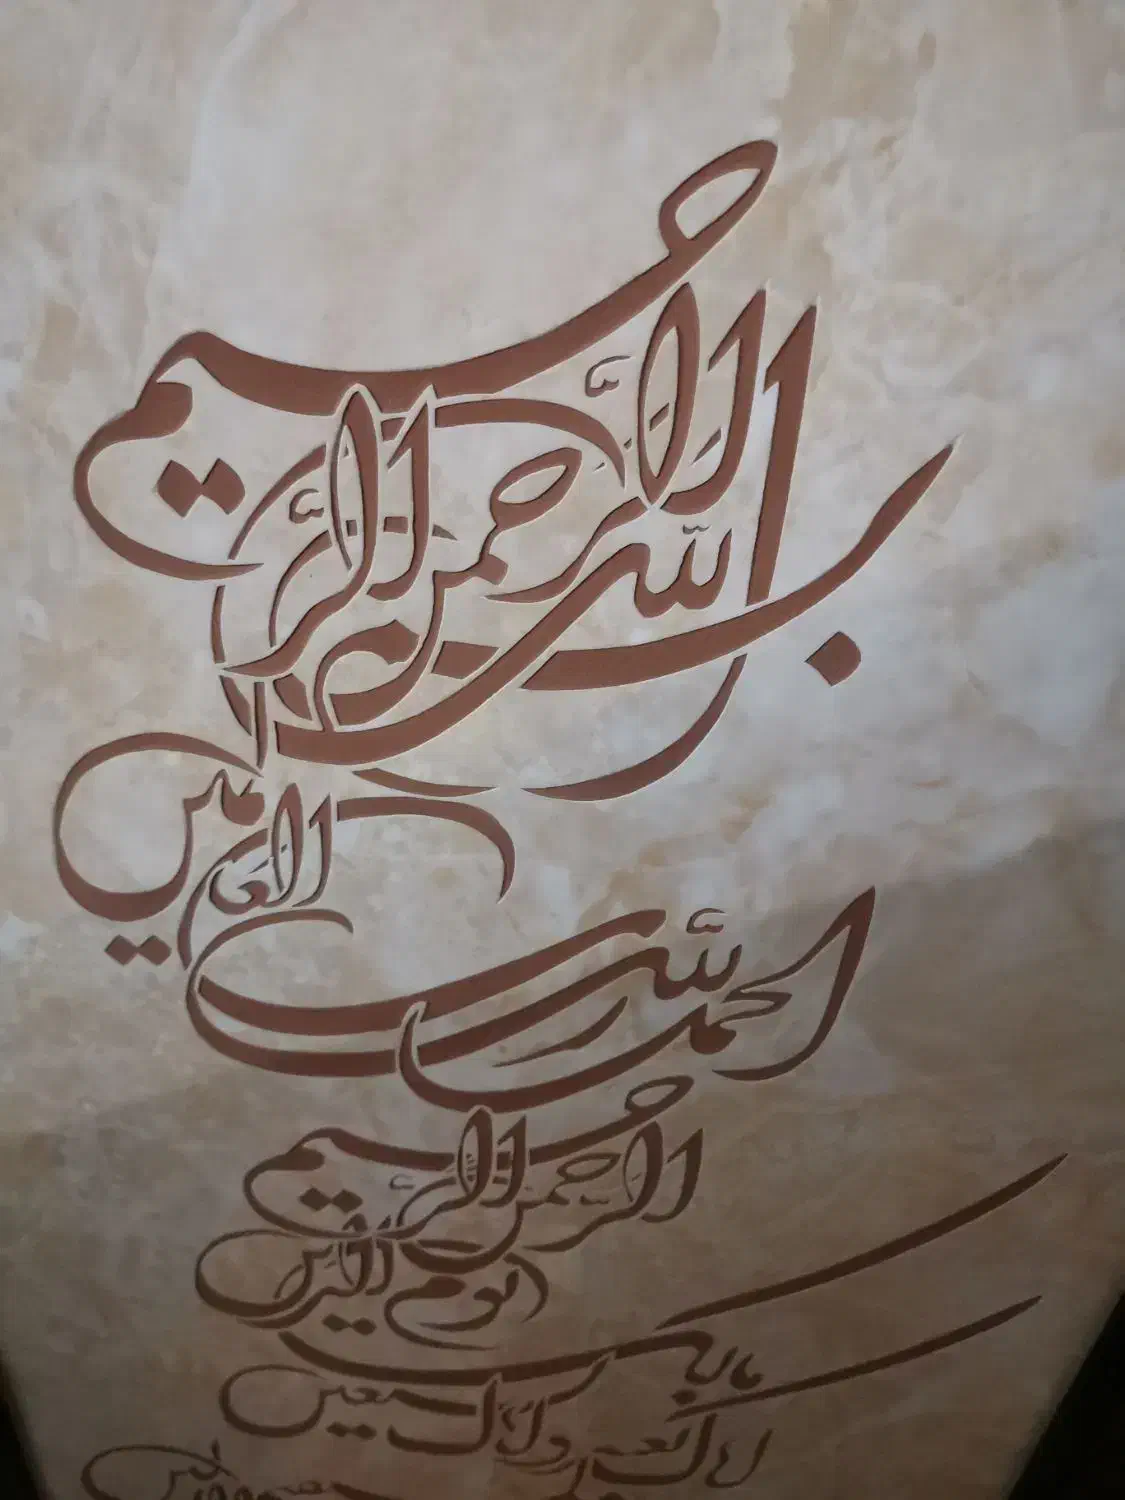 بسم الله الرحمن الرحيم
الحمد لله رب العالمين
الرحمن الرحيم
يوم الدين
اياك نعبد واياك نستعين